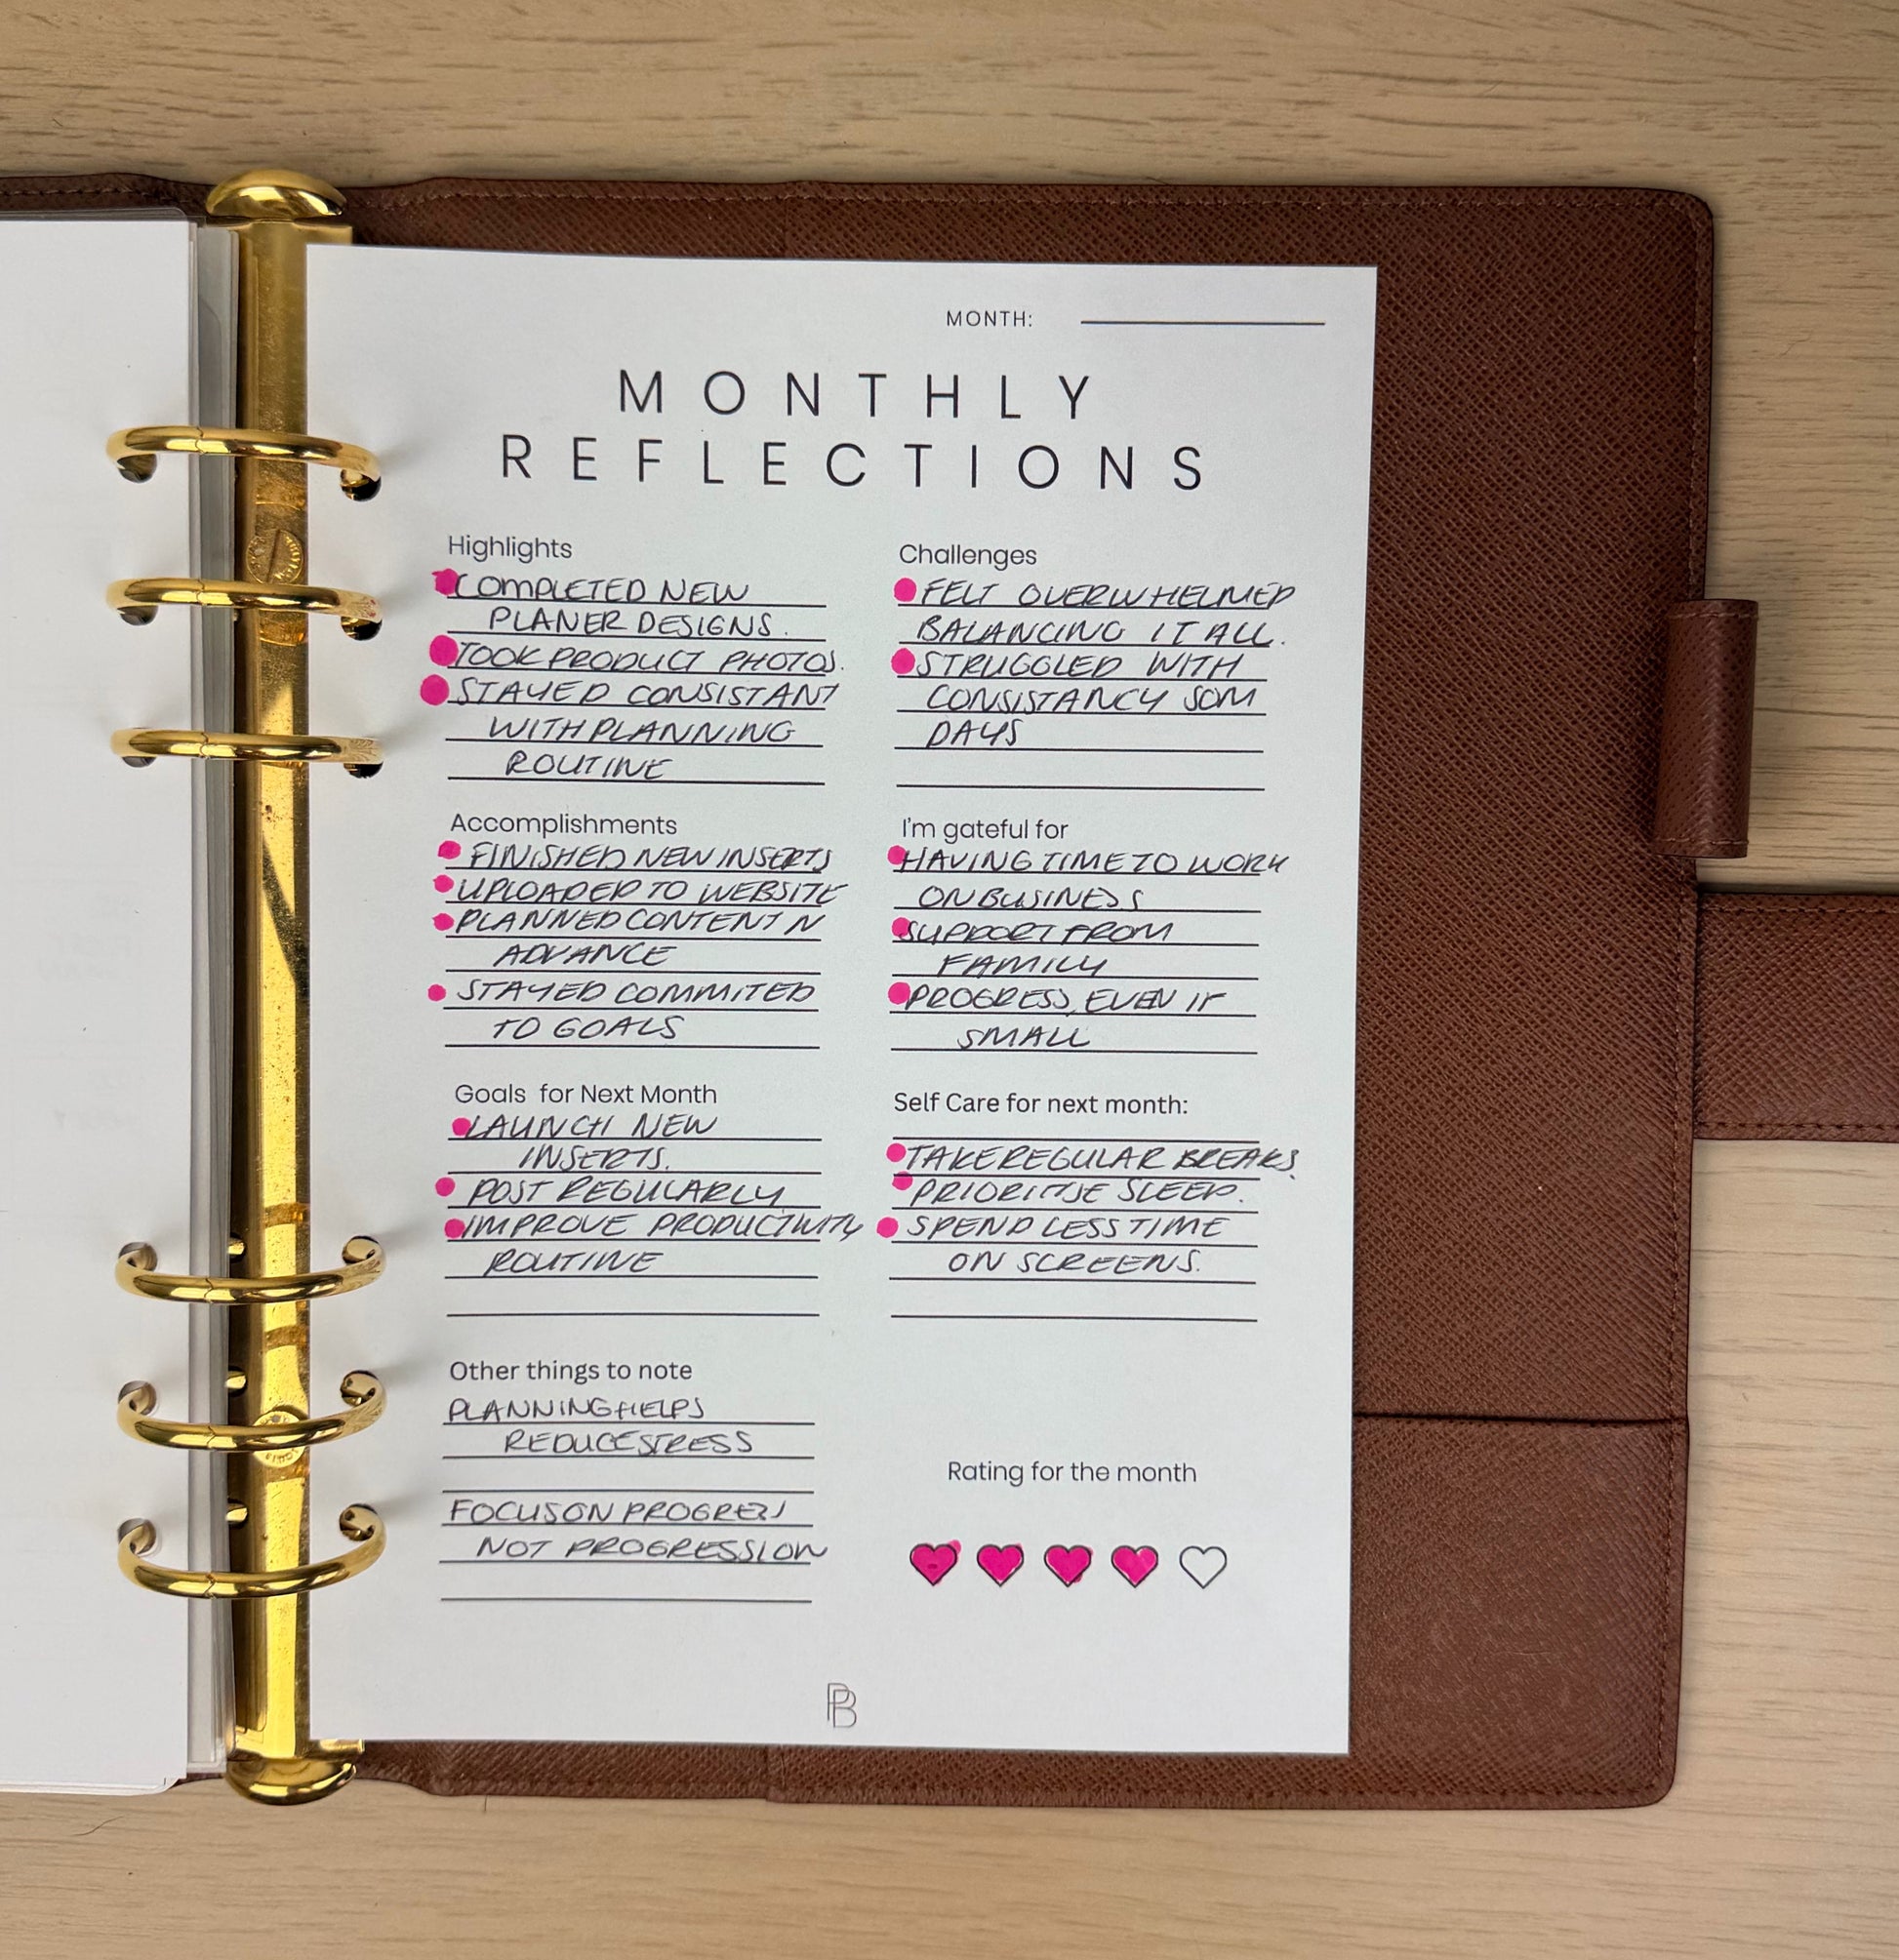 MONTH:
MONTHLY
REFLECTIONS
Highlights
COMPLETED NEW
PLANER DESIGNS.
TOOK PRODUCT PHOTOS.
STAYED CONSISTANT
WITH PLANNING
ROUTINE
Challenges
FELT OVERWHELMED
BALANCING IT ALL.
STRUGGLED WITH
CONSISTANCY SOM
DAYS
Accomplishments
FINISHED NEW INSERTS
UPLOADED TO WEBSITE
PLANNED CONTENT N
ADVANCE
STAYED COMMITED
TO GOALS
I'm gateful for
HAVING TIME TO WORK
ON BUSINESS
SUPPORT FROM
FAMILY
PROGRESS, EVEN IF
SMALL
Goals for Next Month
LAUNCH NEW
INSERTS.
POST REGULARLY
IMPROVE PRODUCTIVITY
ROUTINE
Self Care for next month:
TAKE REGULAR BREAKS.
PRIORITISE SLEEP.
SPEND LESS TIME
ON SCREENS.
Other things to note
PLANNING HELPS
REDUCE STRESS
FOCUS ON PROGRESS
NOT PROGRESSION
Rating for the month
PB